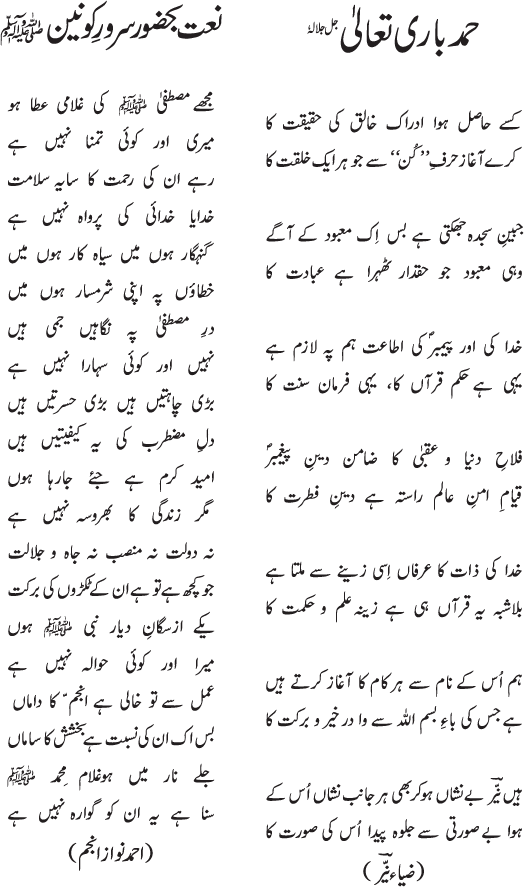 حمد باری تعالیٰ جل جلالہٗ
کسے حاصل ہوا ادراک خالق کی حقیقت کا
کرے آغاز حرفِ ’’کُن‘‘ سے جو ہر ایک خلقت کا
جبینِ سجدہ جھکتی ہے بس اِک معبود کے آگے
وہی معبود جو حقدار ٹھہرا ہے عبادت کا
خدا کی اور پیمبرؐ کی اطاعت ہم پہ لازم ہے
یہی ہے حکم قرآں کا، یہی فرمان سنت کا
فلاحِ دنیا و عقبیٰ کا ضامن دینِ پیغمبرؐ
قیامِ امنِ عالم راستہ ہے دینِ فطرت کا
خدا کی ذات کا عرفاں اِسی زینے سے ملتا ہے
بلاشبہ یہ قرآں ہی ہے زینہ علم و حکمت کا
ہم اُس کے نام سے ہر کام کا آغاز کرتے ہیں
ہے جس کی باءِ بسم اللہ سے وا در خیر و برکت کا
ہیں نیّرؔ بے نشاں ہو کر بھی ہر جانب نشاں اُس کے
ہوا بے صورتی سے جلوہ پیدا اُس کی صورت کا
(ضیاء نیّرؔ)
نعت بحضور سرورِ کونین ﷺ
مجھے مصطفیٰ ﷺ کی غلامی عطا ہو
میری اور کوئی تمنا نہیں ہے
رہے ان کی رحمت کا سایہ سلامت
خدایا خدائی کی پرواہ نہیں ہے
گنہگار ہوں میں سیاہ کار ہوں میں
خطاؤں پہ اپنی شرمسار ہوں میں
درِ مصطفیٰ پہ نگاہیں جمی ہیں
نہیں اور کوئی سہارا نہیں ہے
بڑی چاہتیں ہیں بڑی حسرتیں ہیں
دلِ مضطرب کی یہ کیفیتیں ہیں
امید کرم ہے جئے جارہا ہوں
مگر زندگی کا بھروسہ نہیں ہے
نہ دولت نہ منصب نہ جاہ و جلالت
جو کچھ ہے تو ہے ان کے ٹکڑوں کی برکت
یکے از سگانِ دیار نبی ﷺ ہوں
میرا اور کوئی حوالہ نہیں ہے
عمل سے تو خالی ہے انجمؔ کا داماں
بس اک ان کی نسبت ہے بخشش کا ساماں
جلے نار میں ہو غلامِ محمد ﷺ
سنا ہے یہ ان کو گوارہ نہیں ہے
(احمد نواز انجم)